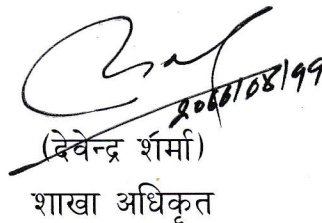 २०६६/०८/११
(देवेन्द्र शर्मा)
शाखा अधिकृत